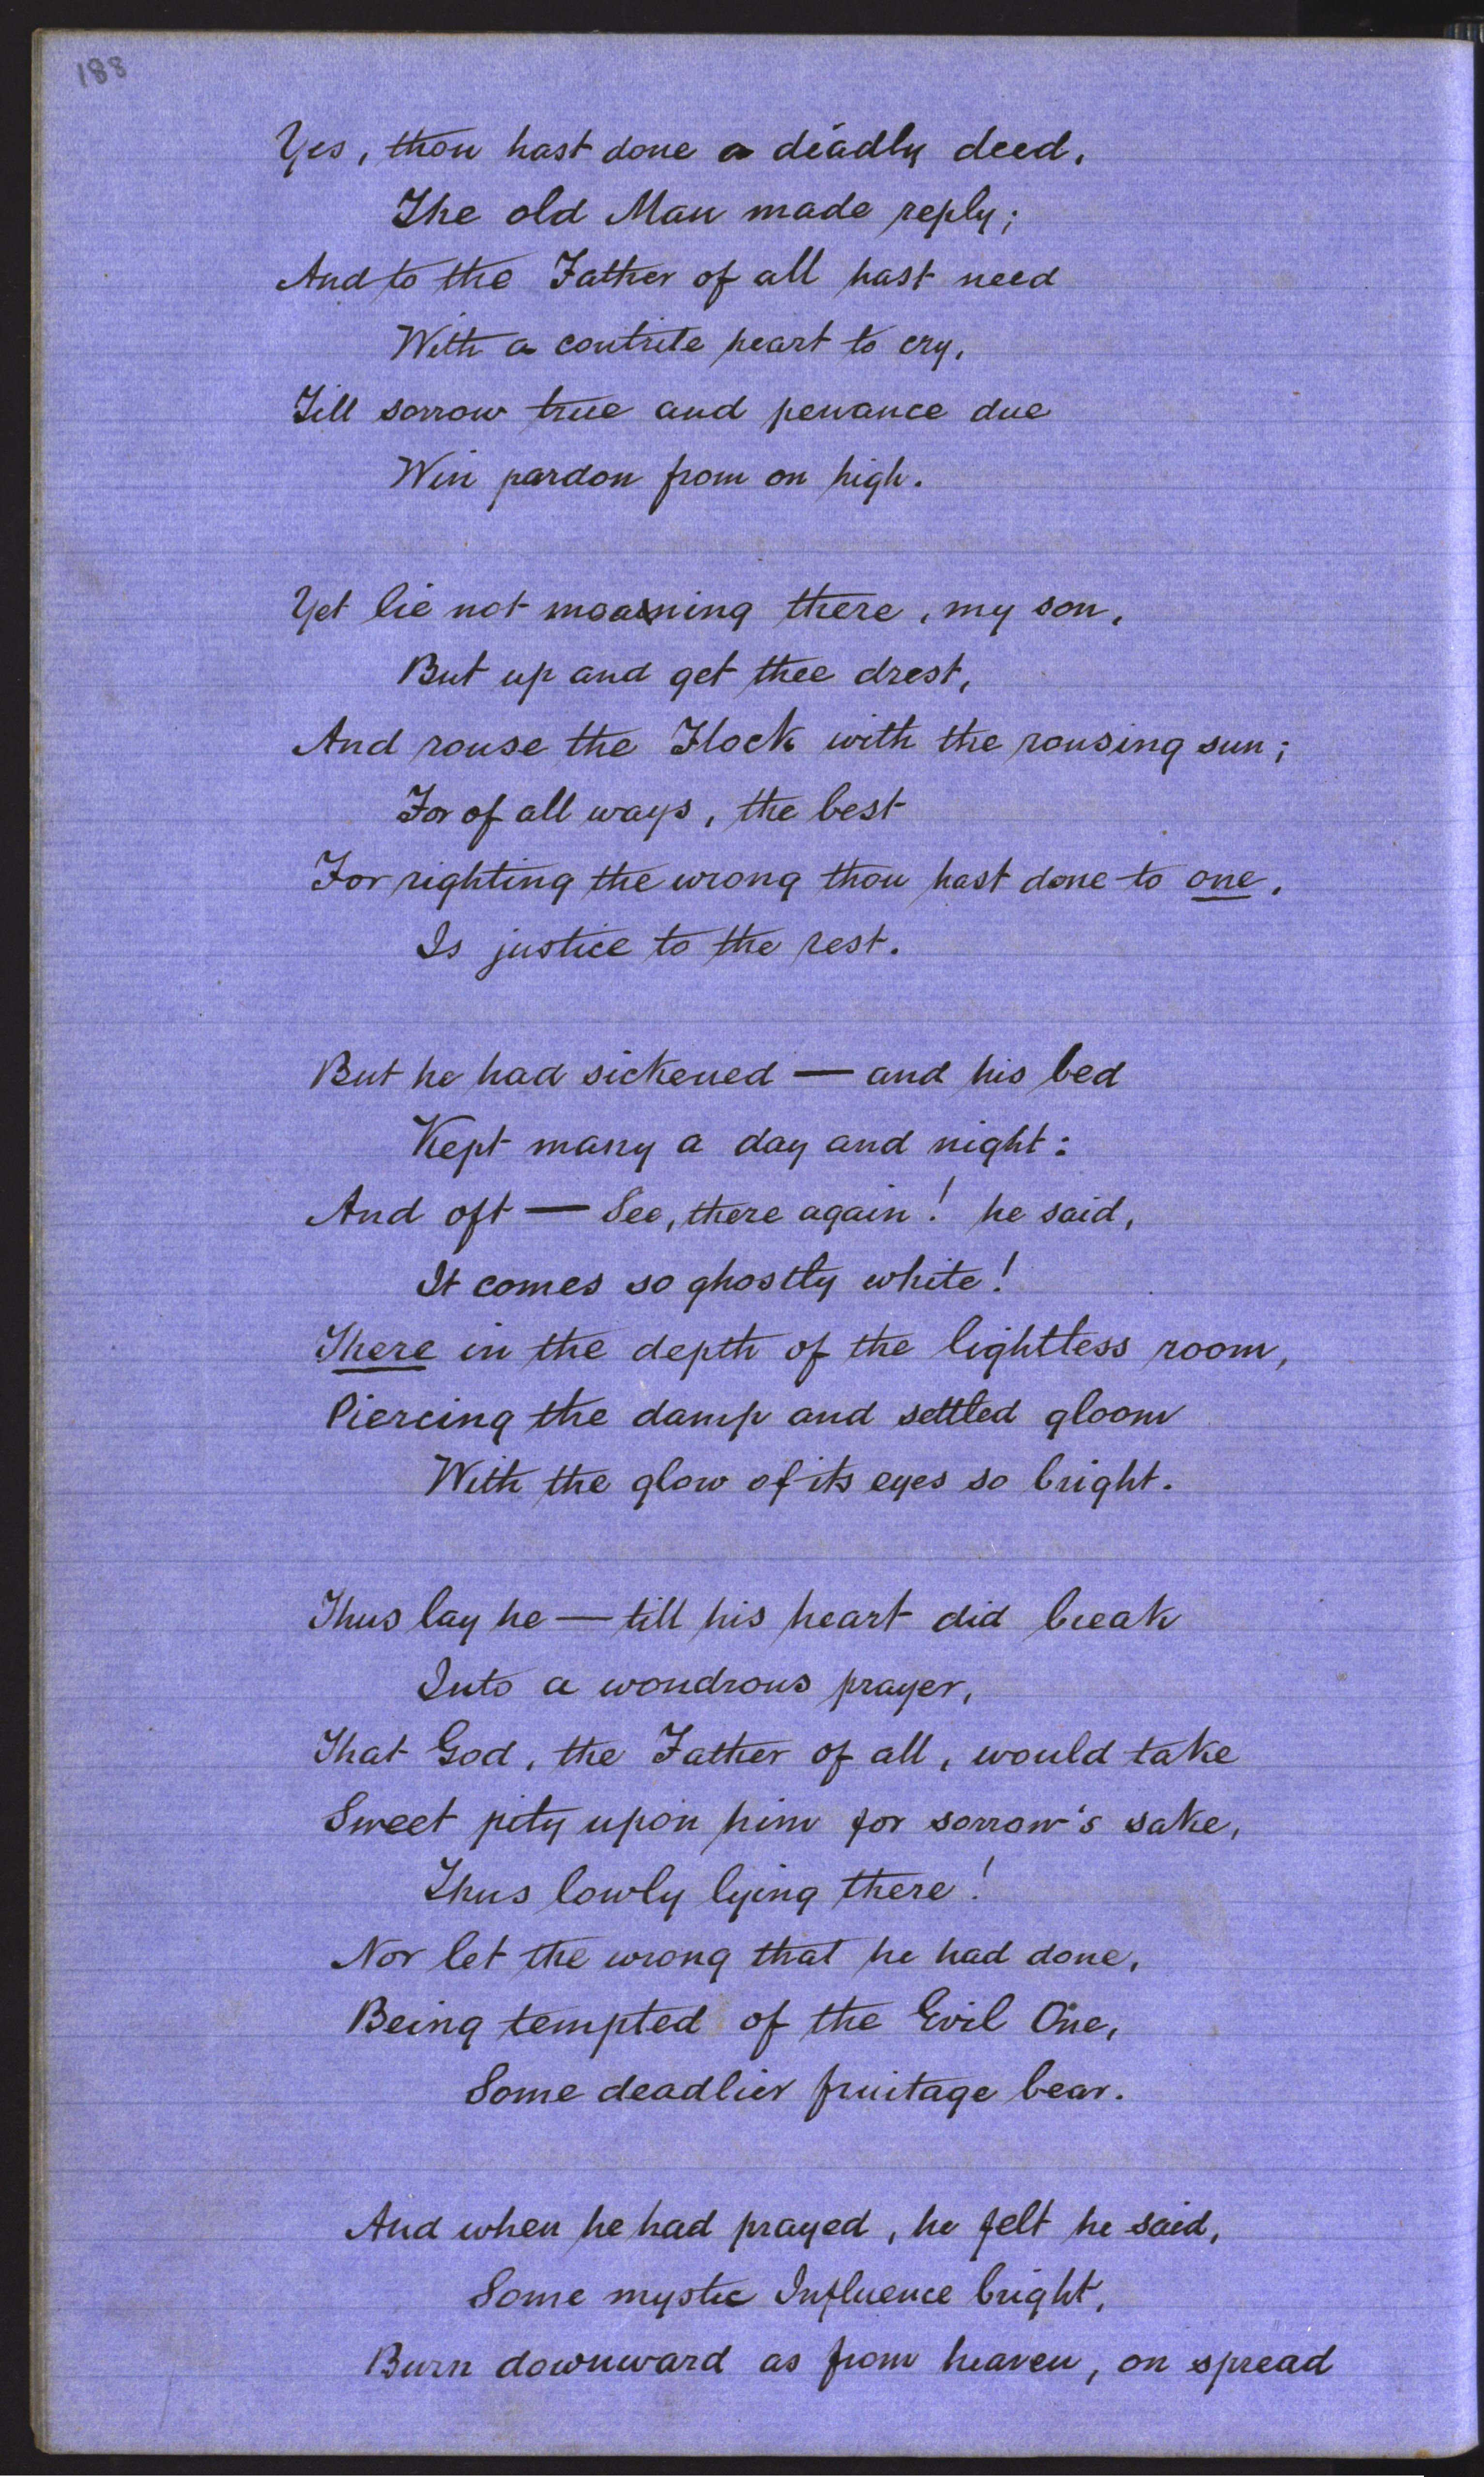 188
Yes, thou hast done a deadly deed,
The old Man made reply;
And to the Father of all hast need
With a contrite heart to cry,
Till sorrow true and penance due
Win pardon from on high.
Yet lie not moaning there, my son,
But up and get thee drest,
And rouse the Flock with the rousing sun;
For of all ways, the best
For righting the wrong thou hast done to one,
Is justice to the rest.
But he had sickened — and his bed
Kept many a day and night:
And oft — See, there again! he said,
It comes so ghostly white!
There in the depth of the lightless room,
Piercing the damp and settled gloom
With the glow of its eyes so bright.
Thus lay he — till his heart did break
Into a wondrous prayer,
That God, the Father of all, would take
Sweet pity upon him for sorrow's sake,
Thus lowly lying there!
Nor let the wrong that he had done,
Being tempted of the Evil One,
Some deadlier fruitage bear.
And when he had prayed, he felt he said,
Some mystic Influence bright,
Burn downward as from heaven, on spread